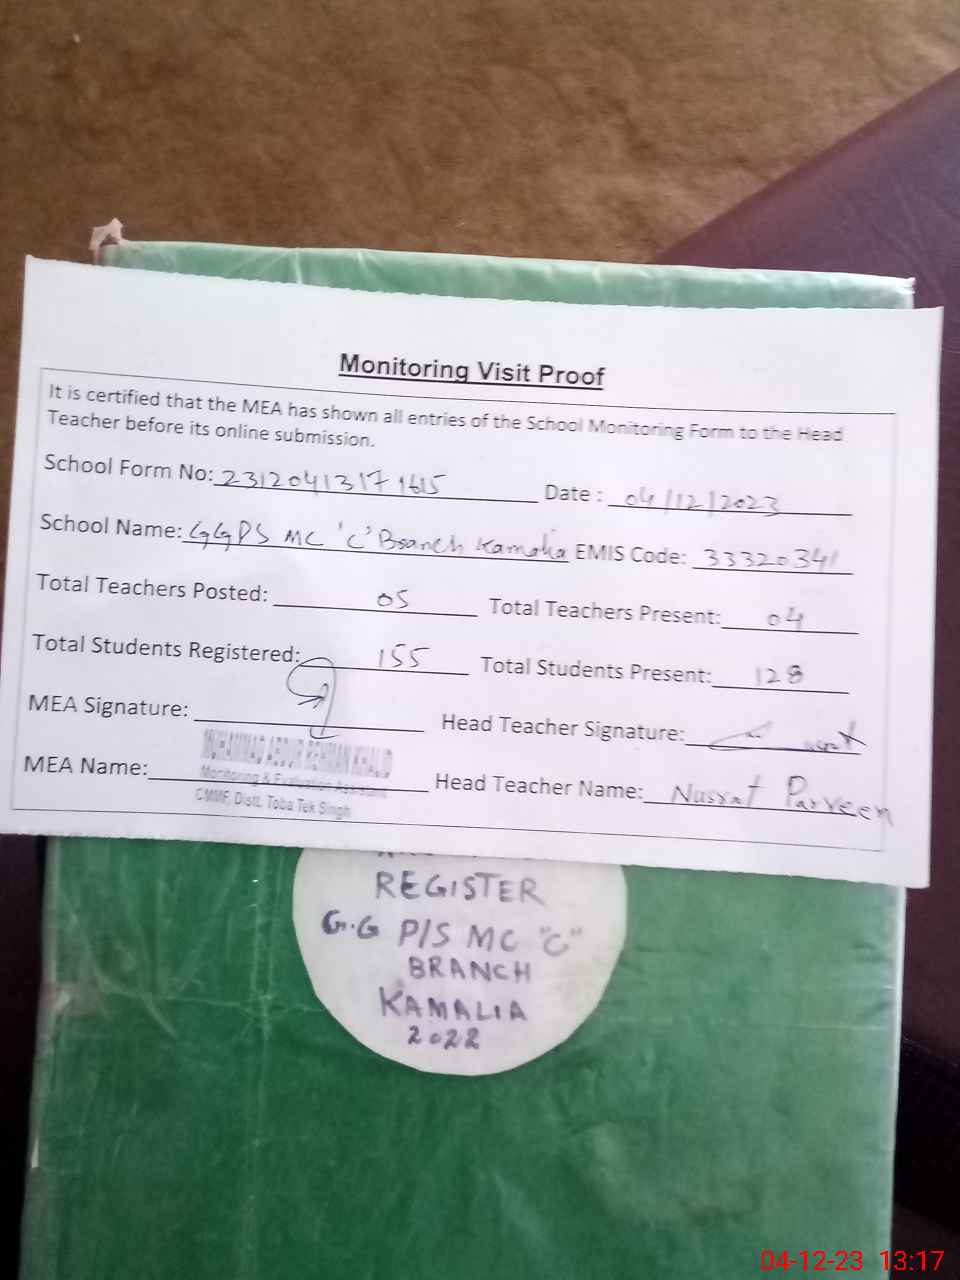 Monitoring Visit Proof
It is certified that the MEA has shown all entries of the School Monitoring Form to the Head
Teacher before its online submission.
School Form No: 23120413171615 Date : 04/12/2023
School Name: GGPS MC 'C' Branch Kamalia EMIS Code: 33320341
Total Teachers Posted: 05 Total Teachers Present: 04
Total Students Registered: 155 Total Students Present: 128
MEA Signature: Head Teacher Signature:
MUHAMMAD ABDUR REHMAN KHALID
MEA Name: Monitoring & Evaluation Assistant Head Teacher Name: Nusrat Parveen
CMMF, Distt. Toba Tek Singh
REGISTER
G.G P/S MC "C"
BRANCH
KAMALIA
2022
04-12-23 13:17